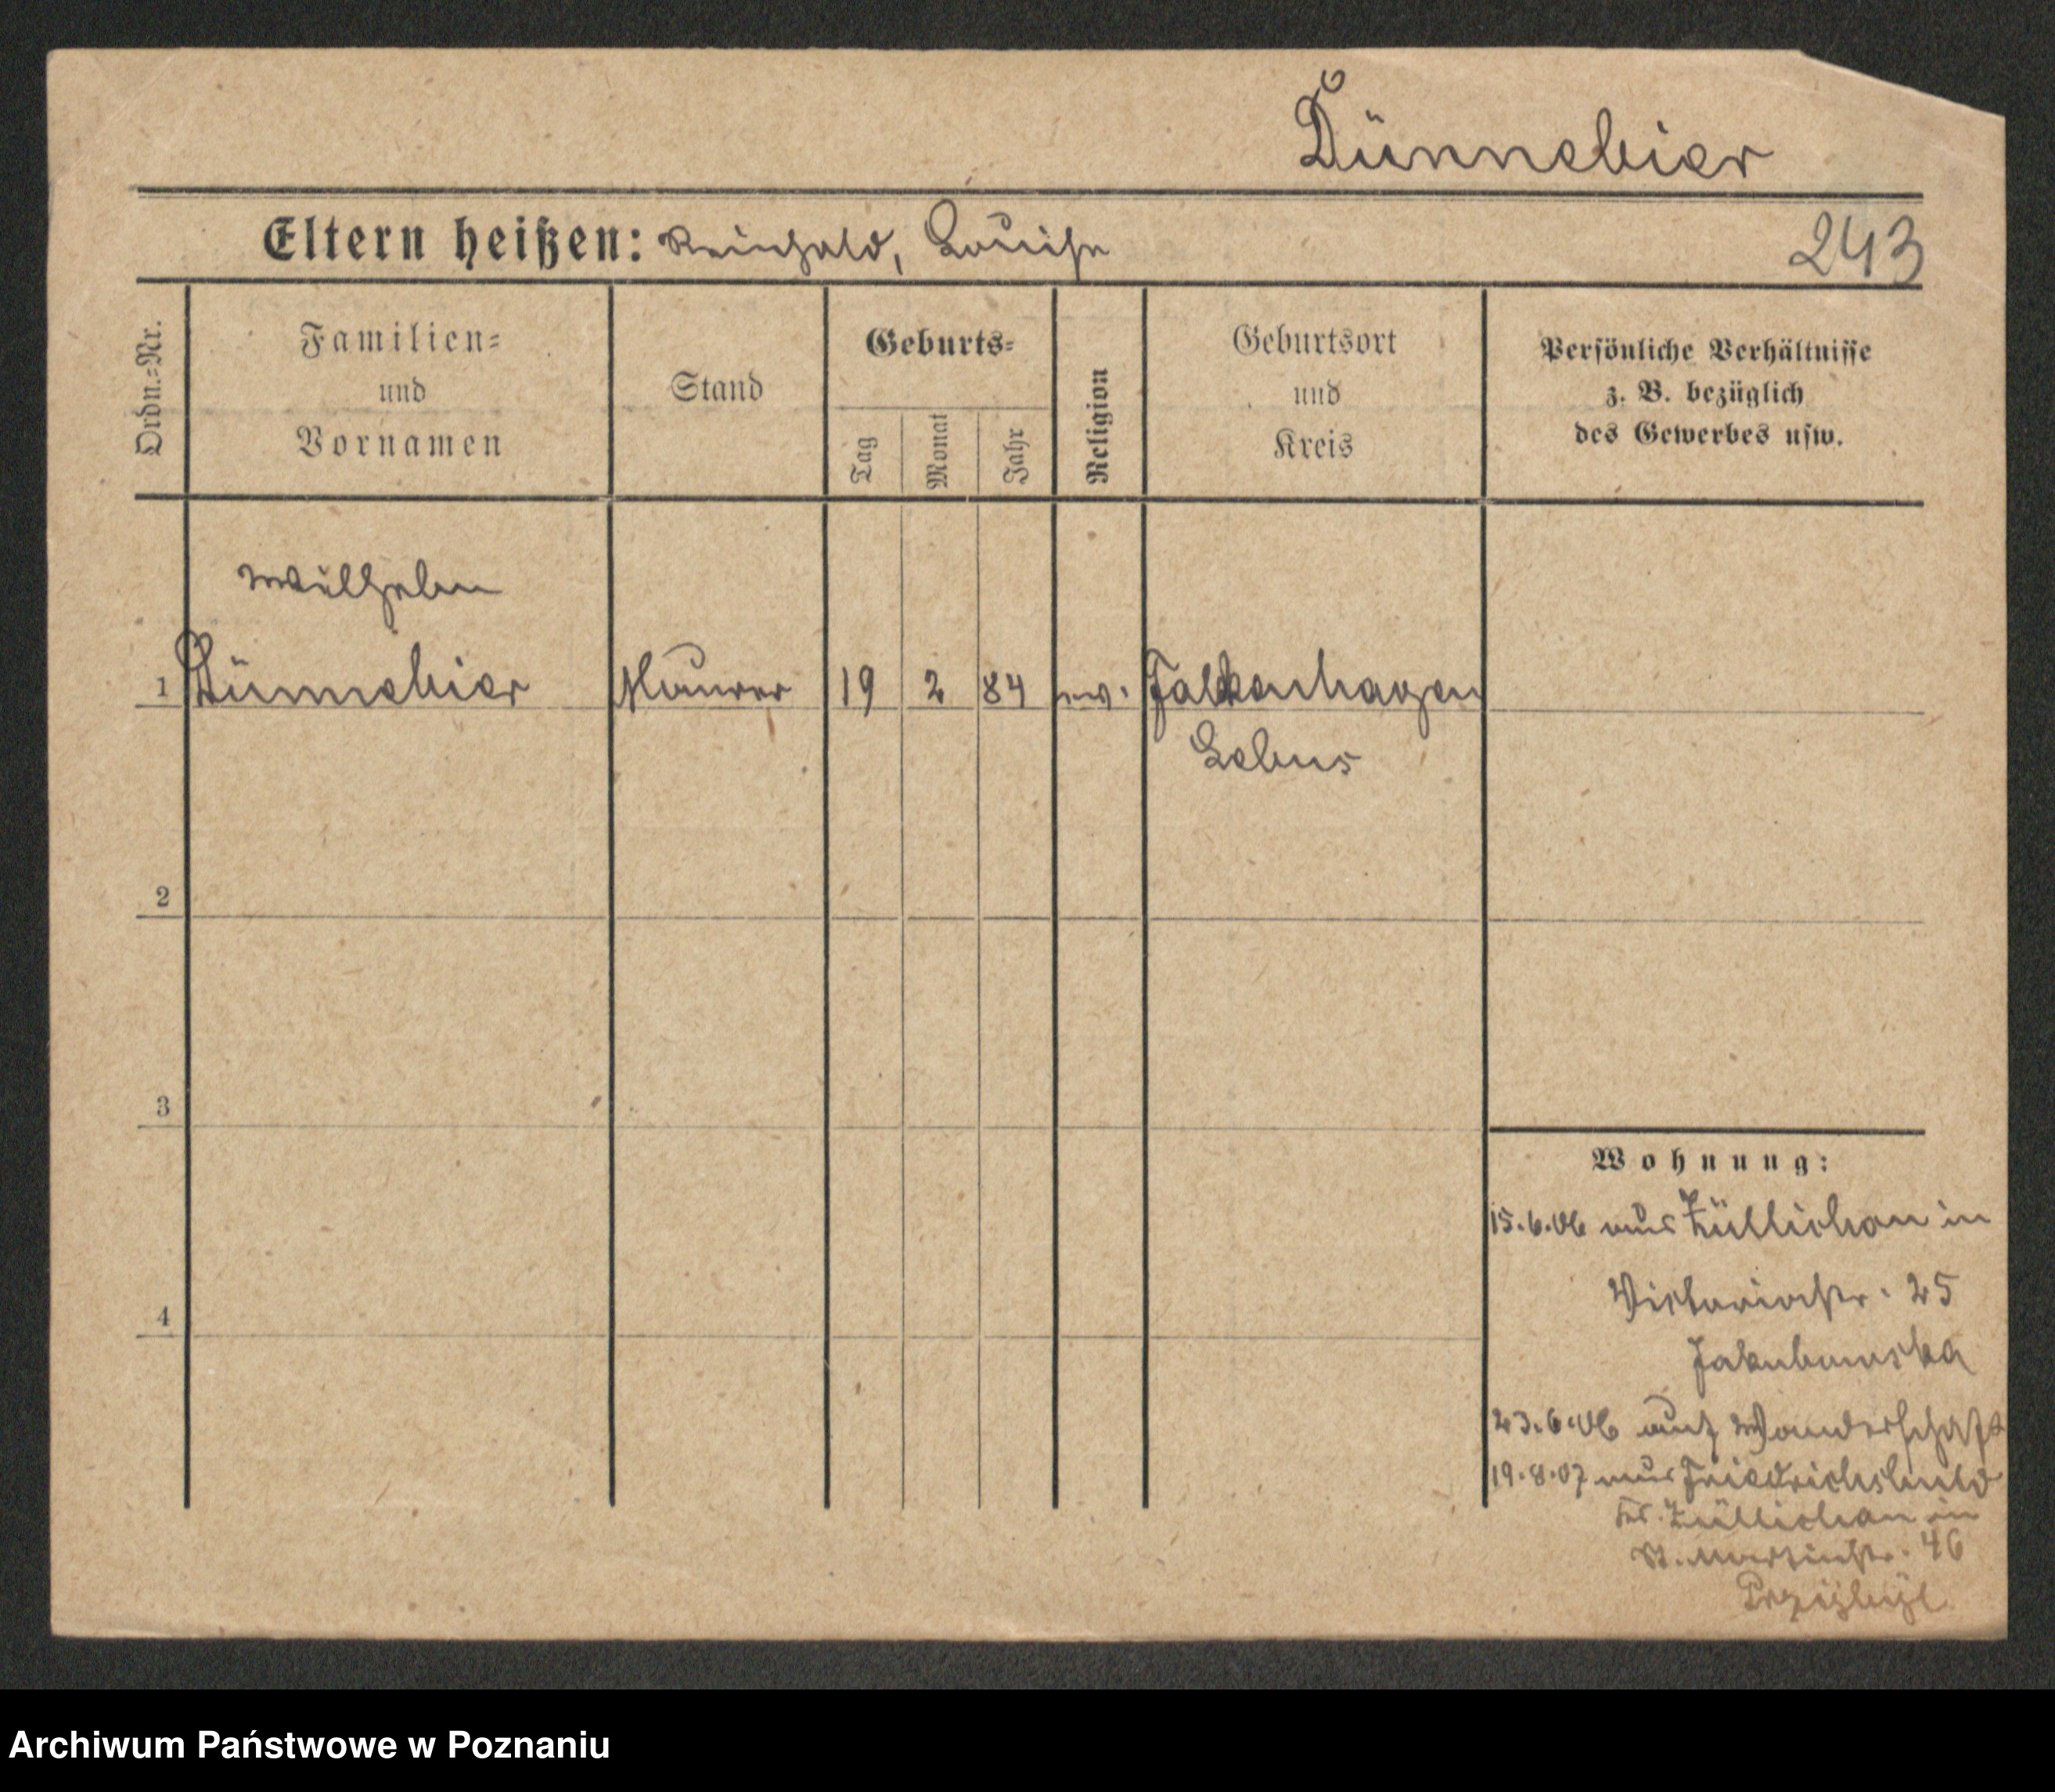 Dünnebier
Eltern heißen: Reinhold, Louise
243
Ordn.-Nr.
Familien-
und
Vornamen
Stand
Geburts-
Tag
Monat
Jahr
Religion
Geburtsort
und
Kreis
Persönliche Verhältnisse
z. B. bezüglich
des Gewerbes usw.
Wilhelm
1 Dünnebier Maurer 19 2 84 ev. Falkenhagen
Lebus
2
3
4
Wohnung:
15.6.06 aus Züllichau in
Victoriastr. 25
Jakubowska
23.6.06 auf Wanderschaft
19.8.07 aus
Kr. Züllichau in
St. Martinstr. 46
Przybyl
Archiwum Państwowe w Poznaniu